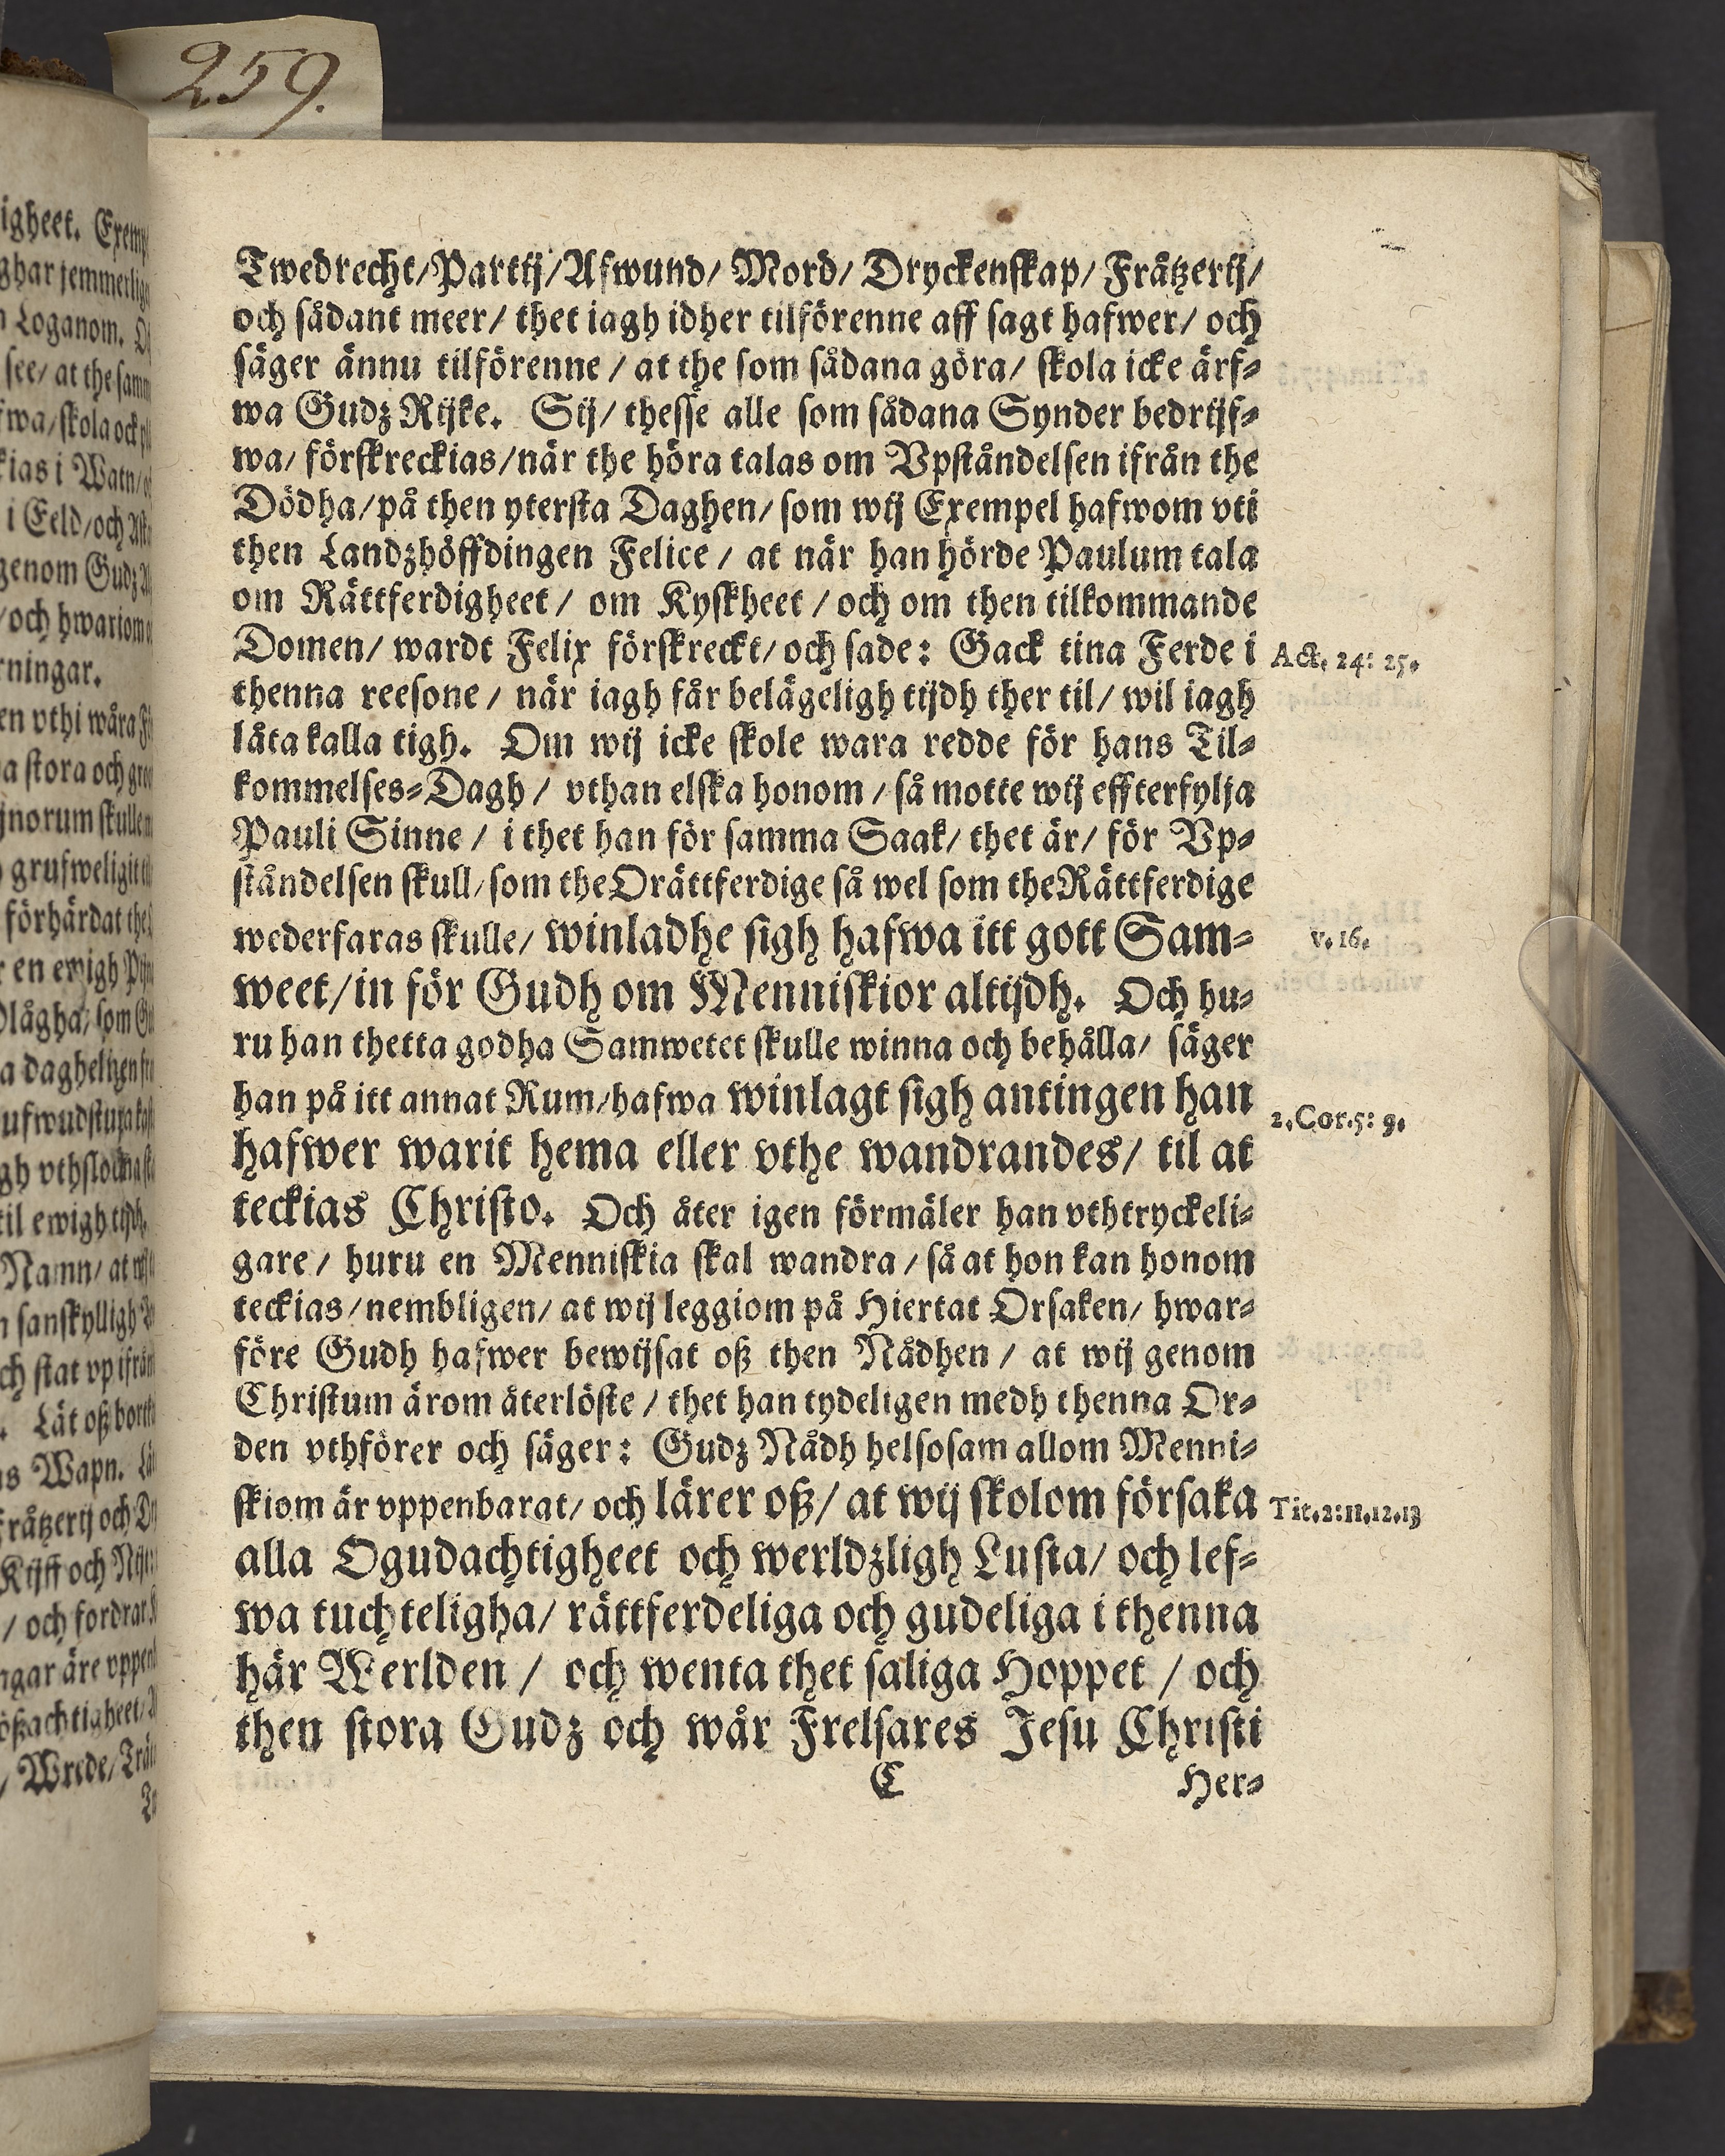 259.
Twedrecht/Partij/Afwund/ Mord/ Dryckenskap/ Fråtzerij/
och sådant meer/ thet iagh idher tilförenne aff sagt hafwer/ och
säger ännu tilförenne / at the som sådana göra/ skola icke ärf-
wa Gudz Rijke. Sij/ thesse alle som sådana Synder bedrijf-
wa/ förskreckias/när the höra talas om Vpståndelsen ifrån the
Dödha/på then ytersta Daghen/ som wij Exempel hafwom vti
then Landzhöffdingen Felice / at när han hörde Paulum tala
om Rättferdigheet / om Kyskheet / och om then tilkommande
Domen/ wardt Felix förskreckt/ och sade: Gack tina Ferde i
Act. 24: 25.
thenna reesone / när iagh får belägeligh tijdh ther til/ wil iagh
låta kalla tigh. Om wij icke skole wara redde för hans Til-
kommelses-Dagh / vthan elska honom / så motte wij effterfylja
Pauli Sinne / i thet han för samma Saak/ thet är/ för Vp-
ståndelsen skull/ som the Orättferdige så wel som the Rättferdige
wederfaras skulle/ winladhe sigh hafwa itt gott Sam-
v. 16.
weet/in för Gudh om Menniskior altijdh. Och hu-
ru han thetta godha Samwetet skulle winna och behålla/ säger
han på itt annat Rum/hafwa winlagt sigh antingen han
2. Cor. 5: 9.
hafwer warit hema eller vthe wandrandes/ til at
teckias Christo. Och åter igen förmäler han vthtryckeli-
gare / huru en Menniskia skal wandra / så at hon kan honom
teckias/nembligen/ at wij leggiom på Hiertat Orsaken/ hwar-
före Gudh hafwer bewijsat oß then Nådhen / at wij genom
Christum ärom återlöste / thet han tydeligen medh thenna Or-
den vthförer och säger: Gudz Nådh helsosam allom Menni-
skiom är vppenbarat/ och lärer oß/ at wij skolom försaka
Tit. 2: 11. 12. 13
alla Ogudachtigheet och werldzligh Lusta/ och lef-
wa tuchteligha/ rättferdeliga och gudeliga i thenna
här Werlden / och wenta thet saliga Hoppet / och
then stora Gudz och wår Frelsares Jesu Christi
C Her-